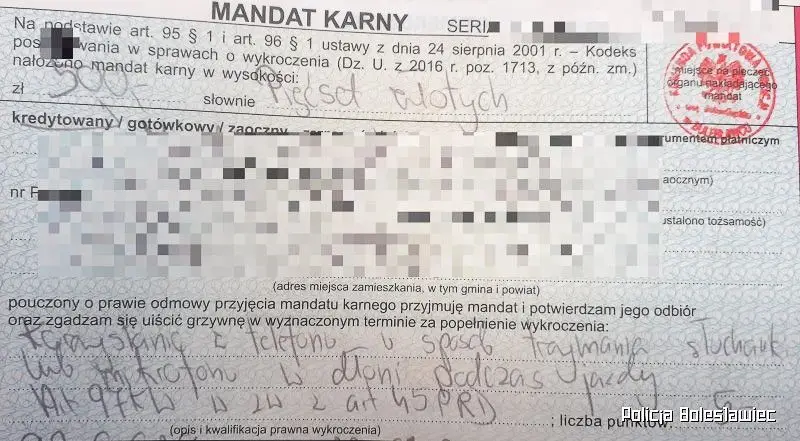 MANDAT KARNY SERIA
Na podstawie art. 95 § 1 i art. 96 § 1 ustawy z dnia 24 sierpnia 2001 r. – Kodeks
wania w sprawach o wykroczenia (Dz. U. z 2016 r. poz. 1713, z późn. zm.)
nałożono mandat karny w wysokości:
zł 500 słownie Pięćset złotych
miejsce na pieczęć
organu nakładającego
mandat
kredytowany / gotówkowy / zaoczny
rumentem płatniczym
aocznym)
nr
ustalono tożsamość)
(adres miejsca zamieszkania, w tym gmina i powiat)
pouczony o prawie odmowy przyjęcia mandatu karnego przyjmuję mandat i potwierdzam jego odbiór
oraz zgadzam się uiścić grzywnę w wyznaczonym terminie za popełnienie wykroczenia:
Korzystanie z telefonu w sposób trzymania słuchawki
lub mikrofonu w dłoni podczas jazdy
Art 97KW w zw z art 45PRD ; liczba punktów: 5
(opis i kwalifikacja prawna wykroczenia)
Policja Bolesławiec